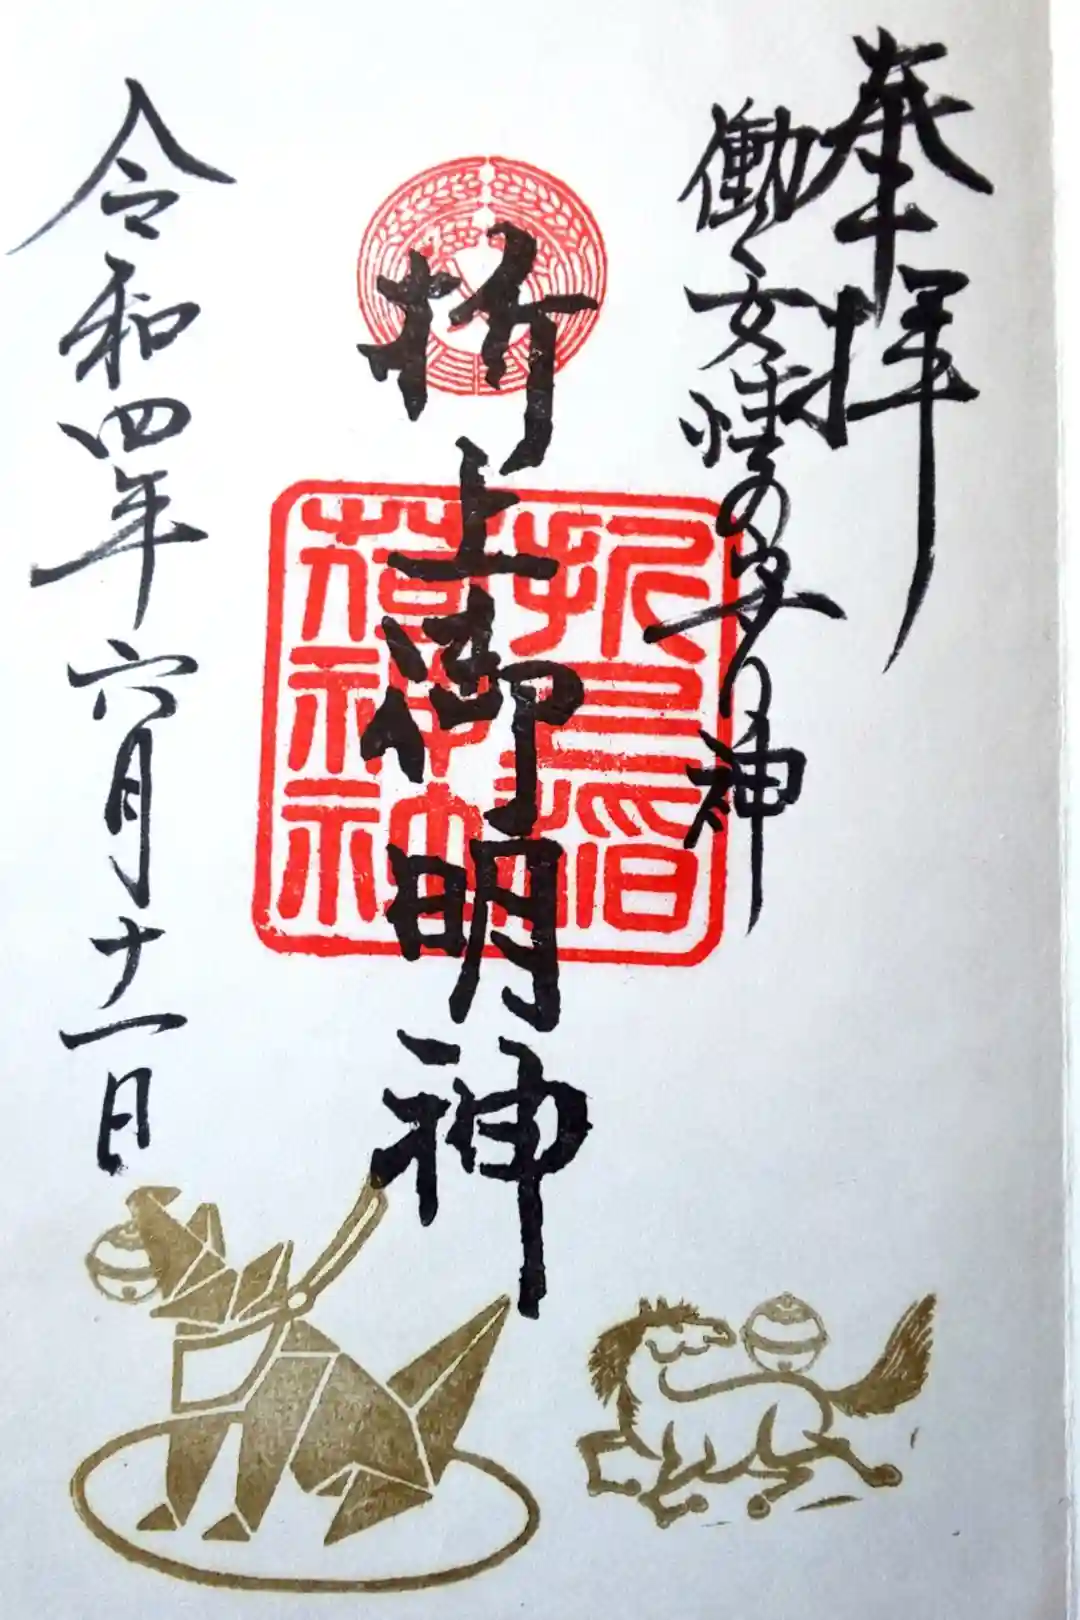 奉拝
働く女性の守り神
折上御明神
折上稲
荷神社
令和四年六月十一日